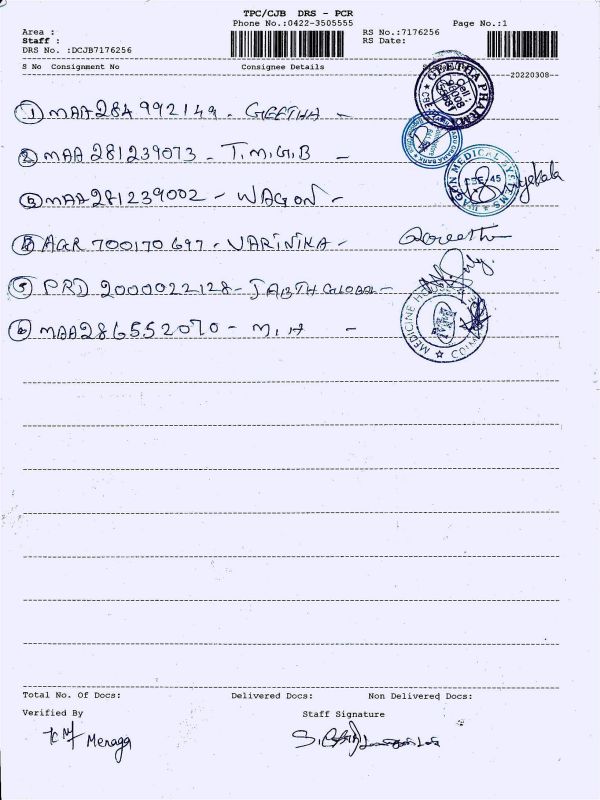 TPC/CJB DRS - PCR
Phone No.:0422-3505555
Page No.:1
Area :
Staff :
DRS No. :DCJB7176256
RS No.:7176256
RS Date:
S No Consignment No
Consignee Details
20220308
① MAA284992149 - GEETHA -
② MAA 281239073 - T.M.G.B -
③ MAA281239002 - WAGON -
④ AGR 700170697 - VARINIKA -
⑤ PRD 2000022128 - GLOBAL -
⑥ MAA286552070 - M.H -
GEETHA PHARMA
WAGON MEDICAL SYSTEMS
CBE-45
MEDICINE
Total No. Of Docs:
Delivered Docs:
Non Delivered Docs:
Verified By
Staff Signature
Menaga